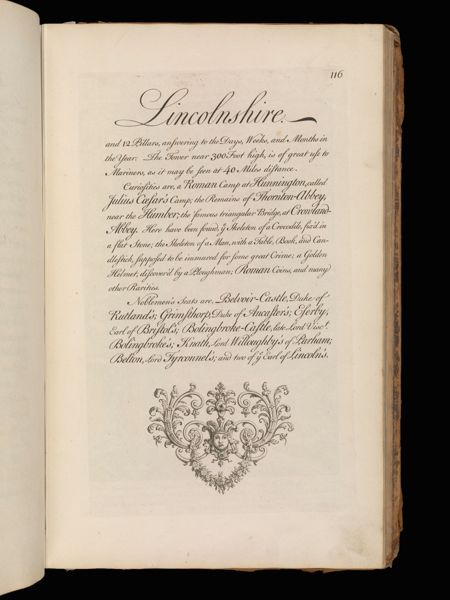 116
Lincolnshire.
and 12 Pillars, answering to the Days, Weeks, and Months in
the Year. The Tower near 300 Foot high, is of great use to
Mariners, as it may be seen at 40 Miles distance.
Curiosities are, a Roman Camp at Hunnington, called
Julius Cæsar's Camp; the Remains of Thornton-Abbey,
near the Humber; the famous triangular Bridge, at Crowland-
Abbey. Here have been found, ye Skeleton of a Crocodile, fix'd in
a flat Stone; the Skeleton of a Man, with a Table, Book, and Can-
dlestick, supposed to be immured for some great Crime; a Golden
Helmet, discover'd by a Ploughman; Roman Coins, and many
other Rarities.
Noblemen's Seats are, Belvoir-Castle, Duke of
Rutland's; Grimsthorp, Duke of Ancaster's; Eserby,
Earl of Bristol's; Bolingbroke-Castle, late Lord Visct.
Bolingbroke's; Knath, Lord Willoughby's of Parham;
Belton, Lord Tyrconnel's; and two of ye Earl of Lincoln's.